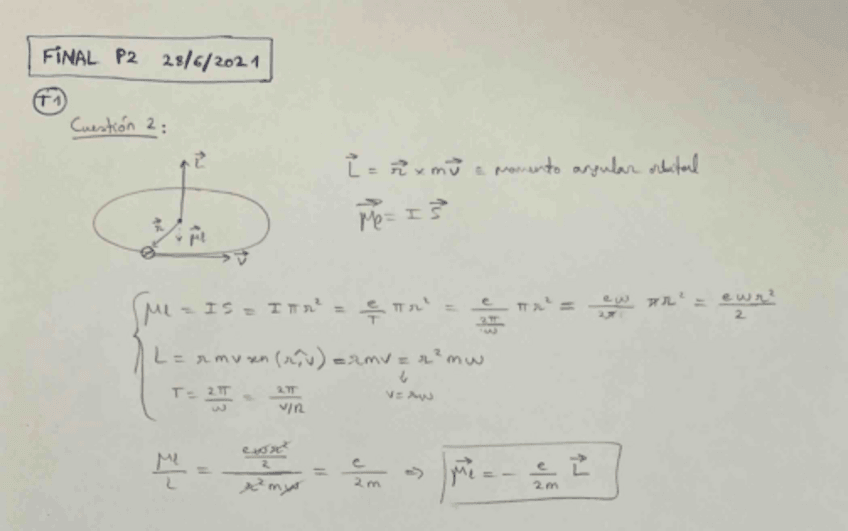 FINAL P2 28/6/2021
T1
Cuestión 2:
L⃗
L⃗ = r⃗ × m v⃗ = momento angular orbital
r⃗
μ⃗l
v⃗
μ⃗l = I S⃗
μl = I S = I π r² = e/T π r² = e/(2π/ω) π r² = eω/2π π r² = e ω r²/2
L = r m v sen (r,v) = r m v = r² m ω
T = 2π/ω = 2π/(v/r)
v = rω
μl/L = (eωr²/2)/(r² m ω) = e/2m ⇒ μ⃗l = - e/2m L⃗